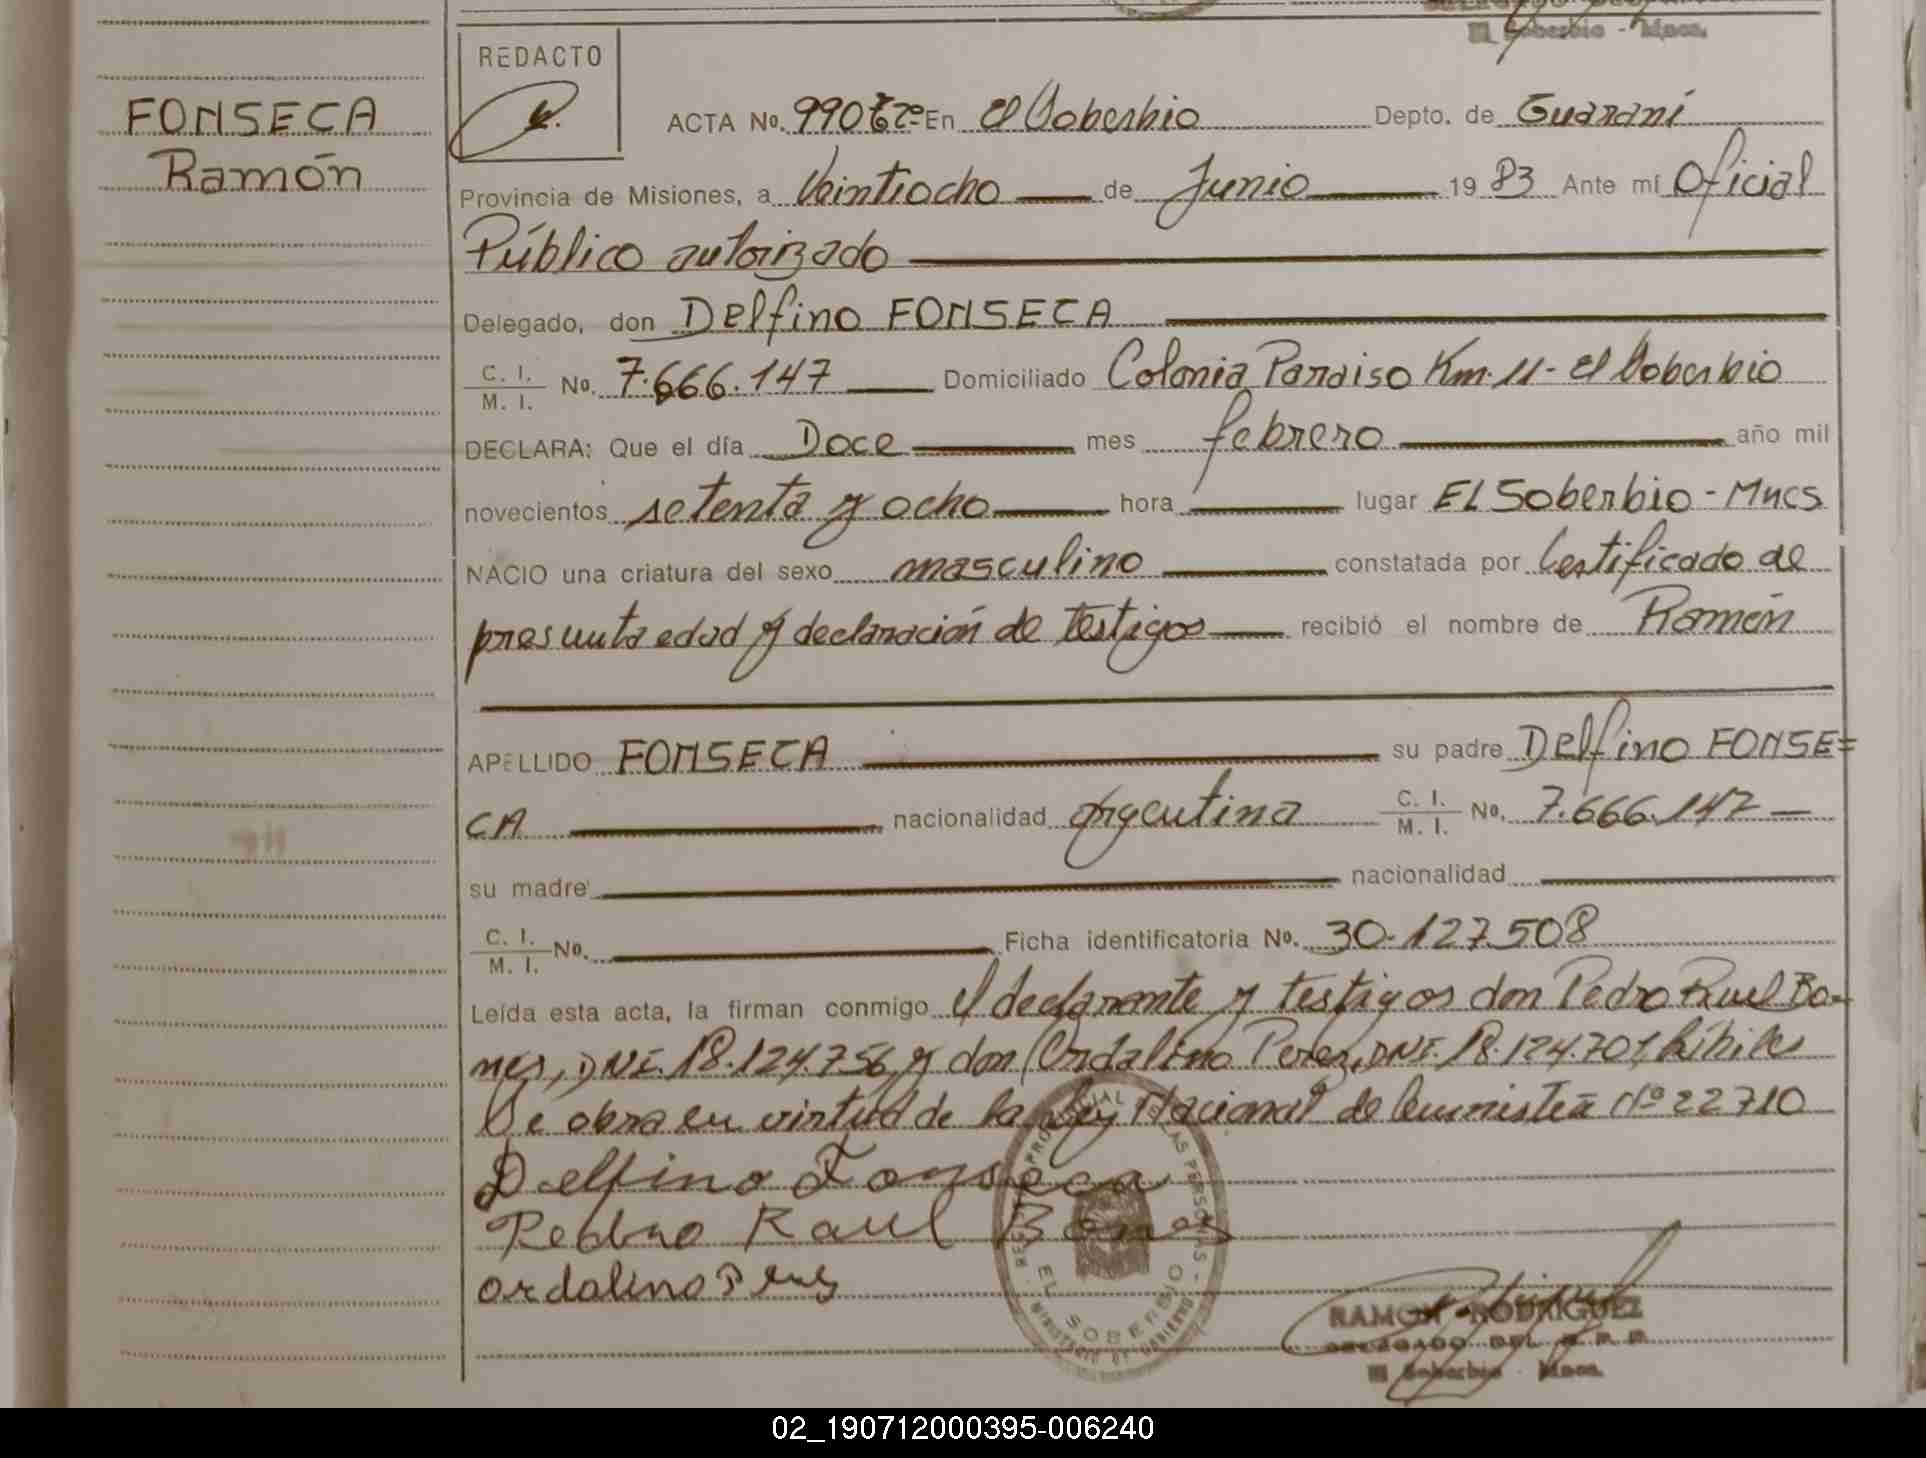 El Soberbio - Mnes.
FONSECA
Ramón
REDACTO
ACTA No. 990 En El Soberbio Depto. de Guaraní
Provincia de Misiones, a Veintiocho de Junio 19 83 Ante mí Oficial
Público autorizado
Delegado, don Delfino FONSECA
C. I. / M. I. No. 7.666.147 Domiciliado Colonia Paraiso Km. 11 - El Soberbio
DECLARA: Que el día Doce mes febrero año mil
novecientos setenta y ocho hora lugar EL Soberbio - Mnes
NACIO una criatura del sexo masculino constatada por Certificado de
presunta edad y declaración de testigos recibió el nombre de Ramón
APELLIDO FONSECA su padre Delfino FONSE=
CA nacionalidad argentina C. I. / M. I. No. 7.666.147
su madre nacionalidad
C. I. / M. I. No. Ficha identificatoria No. 30.127.508
Leída esta acta, la firman conmigo el declarante y testigos don Pedro Raul Bo-
nes, DNI. 18.124.756 y don Ordalino Perez, DNI. 18.124.701, hábiles
Se obra en virtud de la Ley Nacional de Amnistía Nº 22710
Delfino Fonseca
Pedro Raul Bones
ordalino Perez
REGISTRO PROVINCIAL DE LAS PERSONAS
EL SOBERBIO
MINISTERIO DE GOBIERNO
RAMON RODRIGUEZ
DELEGADO DEL R. P. P.
El Soberbio - Mnes.
02_190712000395-006240